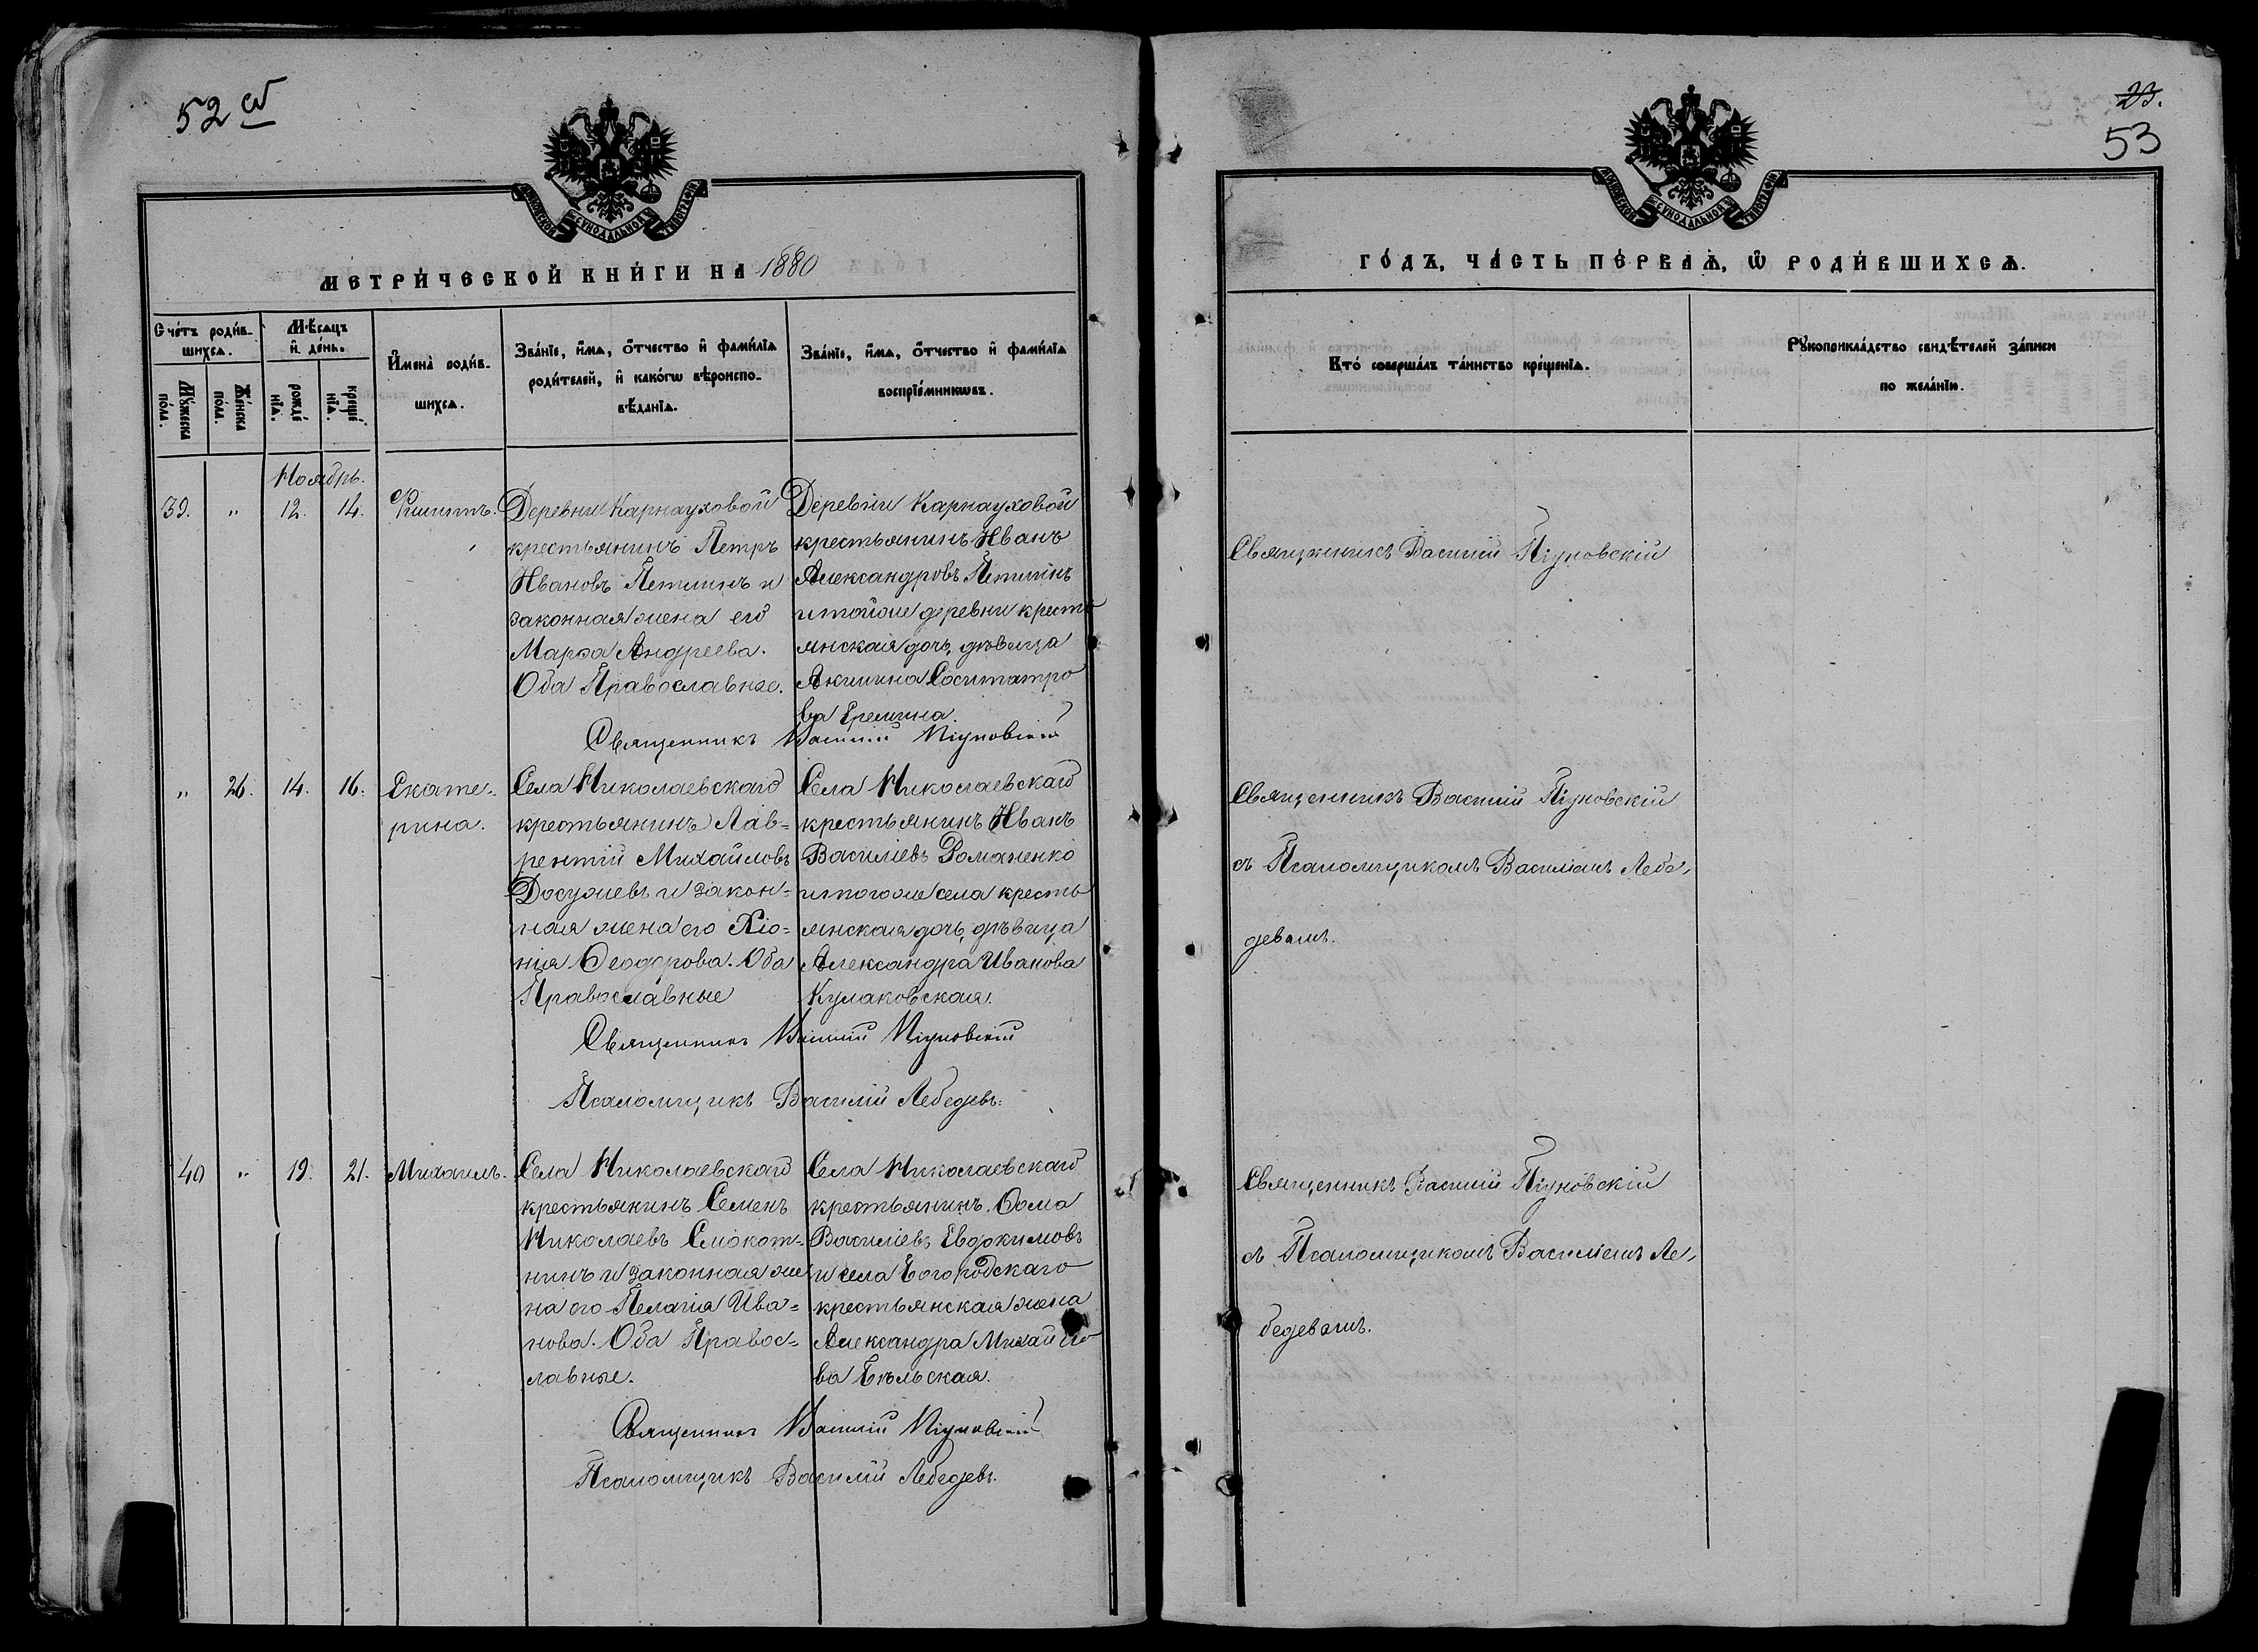 52 об
МЕТРИ́ЧЕСКОЙ КНИ́ГИ НА 1880
Сче́тъ роди́в-
шихсѧ.
Мѣ́сѧцъ
и҆ де́нь.
Мꙋ́жеска
по́ла.
Же́нска
по́ла.
рожде́
нїѧ.
креще́
нїѧ.
И҆мена̀ роди́в-
шихсѧ.
Зва́нїе, и҆́мѧ, ѻ҆́тчество и҆ фами́лїѧ
роди́телей, и҆ како́гѡ вѣроиспо-
вѣ́данїѧ.
Зва́нїе, и҆́мѧ, ѻ҆́тчество и҆ фами́лїѧ
воспрїе́мникѡвъ.
Ноябрь.
39. " 12. 14. Филиппъ.
Деревни Карнауховой
крестьянинъ Петръ
Ивановъ Петлинъ и
законная жена его
Марѳа Андреева.
Оба Православные.
Деревни Карнауховой
крестьянинъ Иванъ
Александровъ Петлинъ
и тойже деревни кресть
янская дочь, дѣвица
Акилина Сосипатро
ва Еремина.
Священникъ Василій Піуновскій
" 26. 14. 16. Екате-
рина.
Села Николаевскаго
крестьянинъ Лав-
рентій Михайловъ
Досужевъ и закон-
ная жена его Хіо-
нія Ѳеодорова. Оба
Православные
Села Николаевскаго
крестьянинъ Иванъ
Василіевъ Романенко
и тогоже села кресть
янская дочь, дѣвица
Александра Иванова
Кулаковская.
Священникъ Василій Піуновскій
Псаломщикъ Василій Лебедевъ.
40 " 19. 21. Михаилъ.
Села Николаевскаго
крестьянинъ Семенъ
Николаевъ Смокот-
нинъ и законная же
на его Пелагія Ива-
нова. Оба Правос-
лавные.
Села Николаевскаго
крестьянинъ Ѳома
Василіевъ Евдокимовъ
и села Богородскаго
крестьянская жена
Александра Михайло
ва Бѣльская.
Священникъ Василій Піуновскій
Псаломщикъ Василій Лебедевъ.
23.
53
ГО́ДЪ, ЧА́СТЬ ПЕ́РВАѦ, Ѡ҆ РОДИ́ВШИХСѦ.
Кто̀ соверша́лъ та́инство креще́нїѧ.
Рꙋкоприкла́дство свидѣ́телей за́писи
по жела́нїю.
Священникъ Василій Піуновскій
Священникъ Василій Піуновскій
съ Псаломщикомъ Василіемъ Лебе-
девымъ.
Священникъ Василій Піуновскій
съ Псаломщикомъ Василіемъ Ле-
бедевымъ.